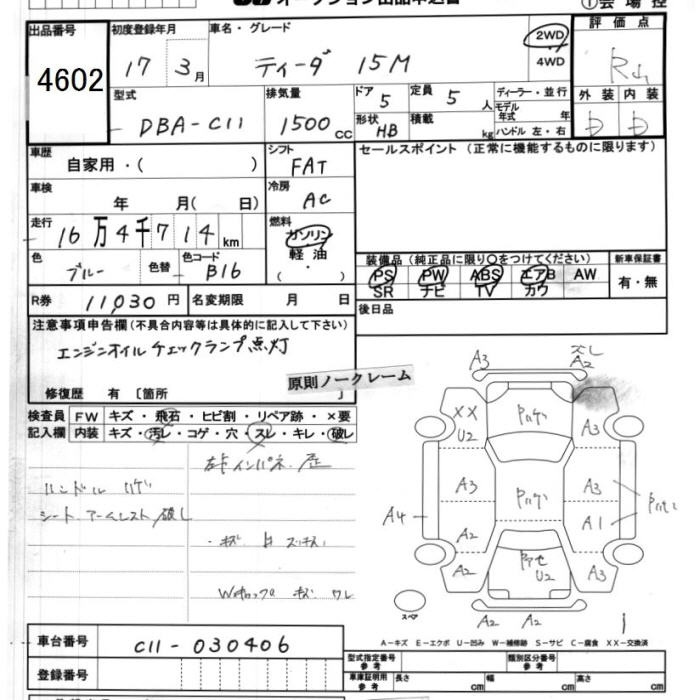 オークション出品申込書
①会場控
出品番号 4602
初度登録年月 17 3月
車名・グレード ティーダ 15M
2WD
4WD
評価点
外装 内装
D D
型式 DBA-C11
排気量 1500 CC
ドア 5
定員 5 人
形状 HB
積載 kg
ディーラー・並行
モデル年式 年
ハンドル 左・右
車歴 自家用・( )
シフト FAT
セールスポイント (正常に機能するものに限ります)
車検 年 月( 日)
冷房 AC
走行 16万4千714km
燃料 ガソリン
軽油
( ・ )
色 ブルー 色替 色コード B16
装備品 (純正品に限り○をつけてください)
新車保証書
PS PW ABS エアB AW
SR ナビ TV カワ
有・無
R券 11,030円 名変期限 月 日
後日品
注意事項申告欄 (不具合内容等は具体的に記入して下さい)
エンジンオイル チェックランプ点灯
原則ノークレーム
修復歴 有 〔箇所 〕
検査員記入欄
FW キズ・飛石・ヒビ割・リペア跡・×要
内装 キズ・汚レ・コゲ・穴・スレ・キレ・破レ
ハンドル ハゲ
シート アームレスト 破レ
A3 A2
XX U2
A3
A3 A3
A4
A2 A1
A2 U2 A3
スペア
A2 A2
A-キズ E-エクボ U-凹み W-補修跡 S-サビ C-腐食 XX-交換済
車台番号 C11-030406
登録番号
型式指定番号 参考
類別区分番号 参考
車庫証明用 参考 長さ cm 幅 cm 高さ cm